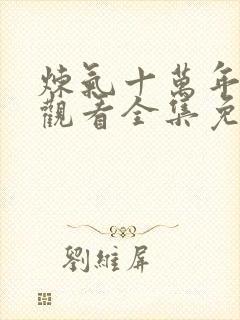 煉氣十萬年
觀看全集免
劉維屏